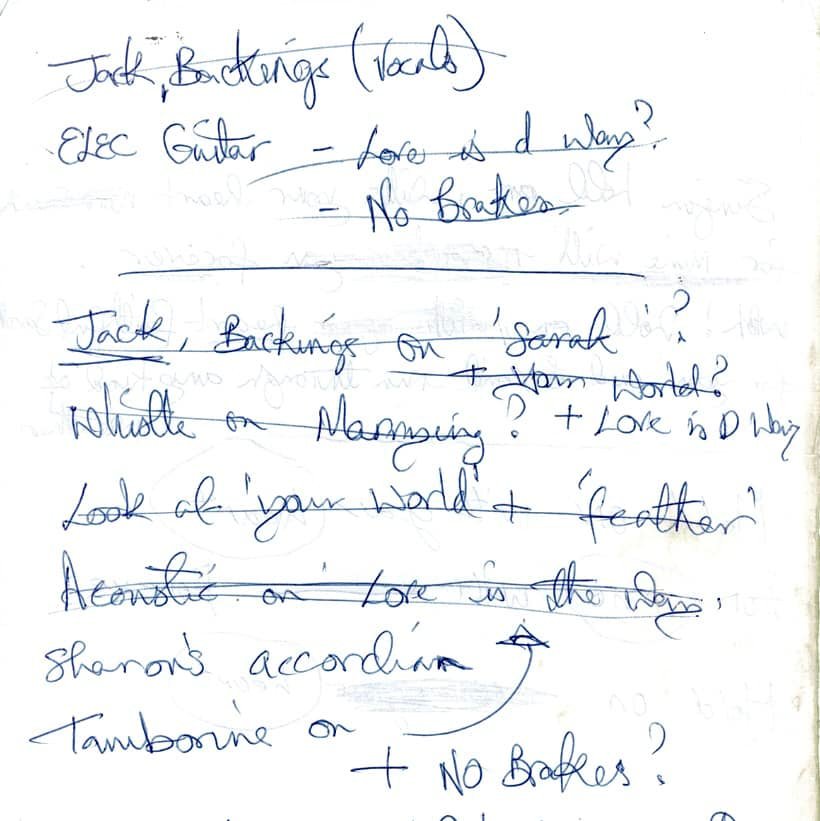 Jack, Backings (Vocals)
ELEC Guitar - Love is d Way?
- No Brakes
Jack, Backings on 'Sarah'?
+ Your World?
Whistle on Marrying? + Love is D Way
Look at 'your World' + 'feather'
Acoustic on 'Love is the Way.
Sharon's accordian
Tamborine on
+ No Brakes?